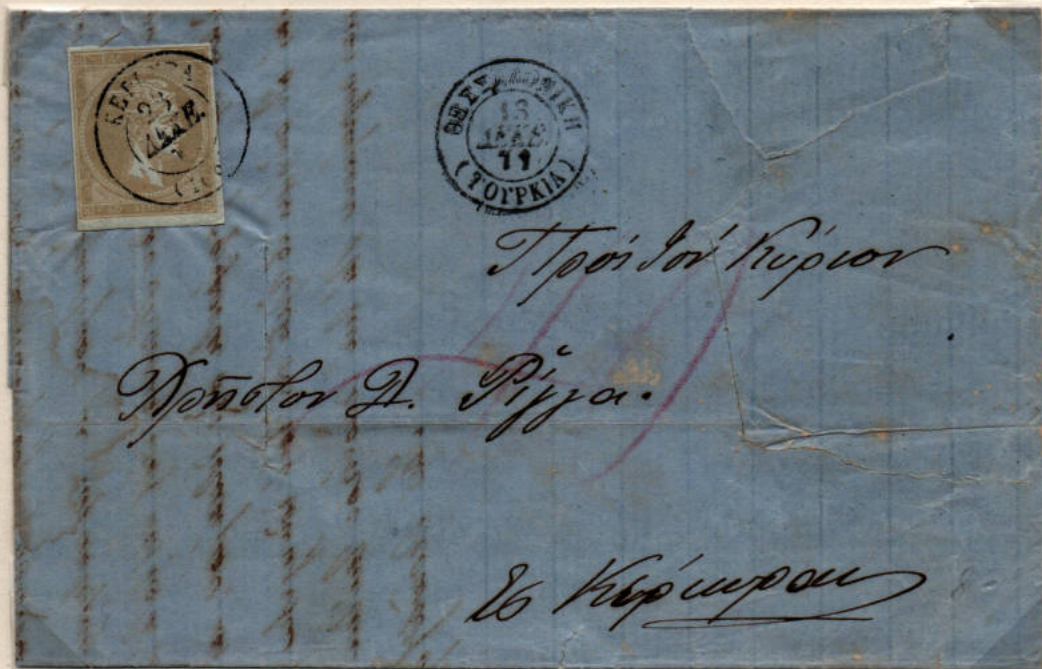 ΚΕΡΚΥΡΑ
ΔΕΚΕ.
ΘΕΣΣΑΛΟΝΙΚΗ
13
ΔΕΚΕ.
77
(ΤΟΥΡΚΙΑ)
Πρὸς τὸν Κύριον
Χρῆστον Δ. Ρίγγα.
Εἰς Κέρκυραν